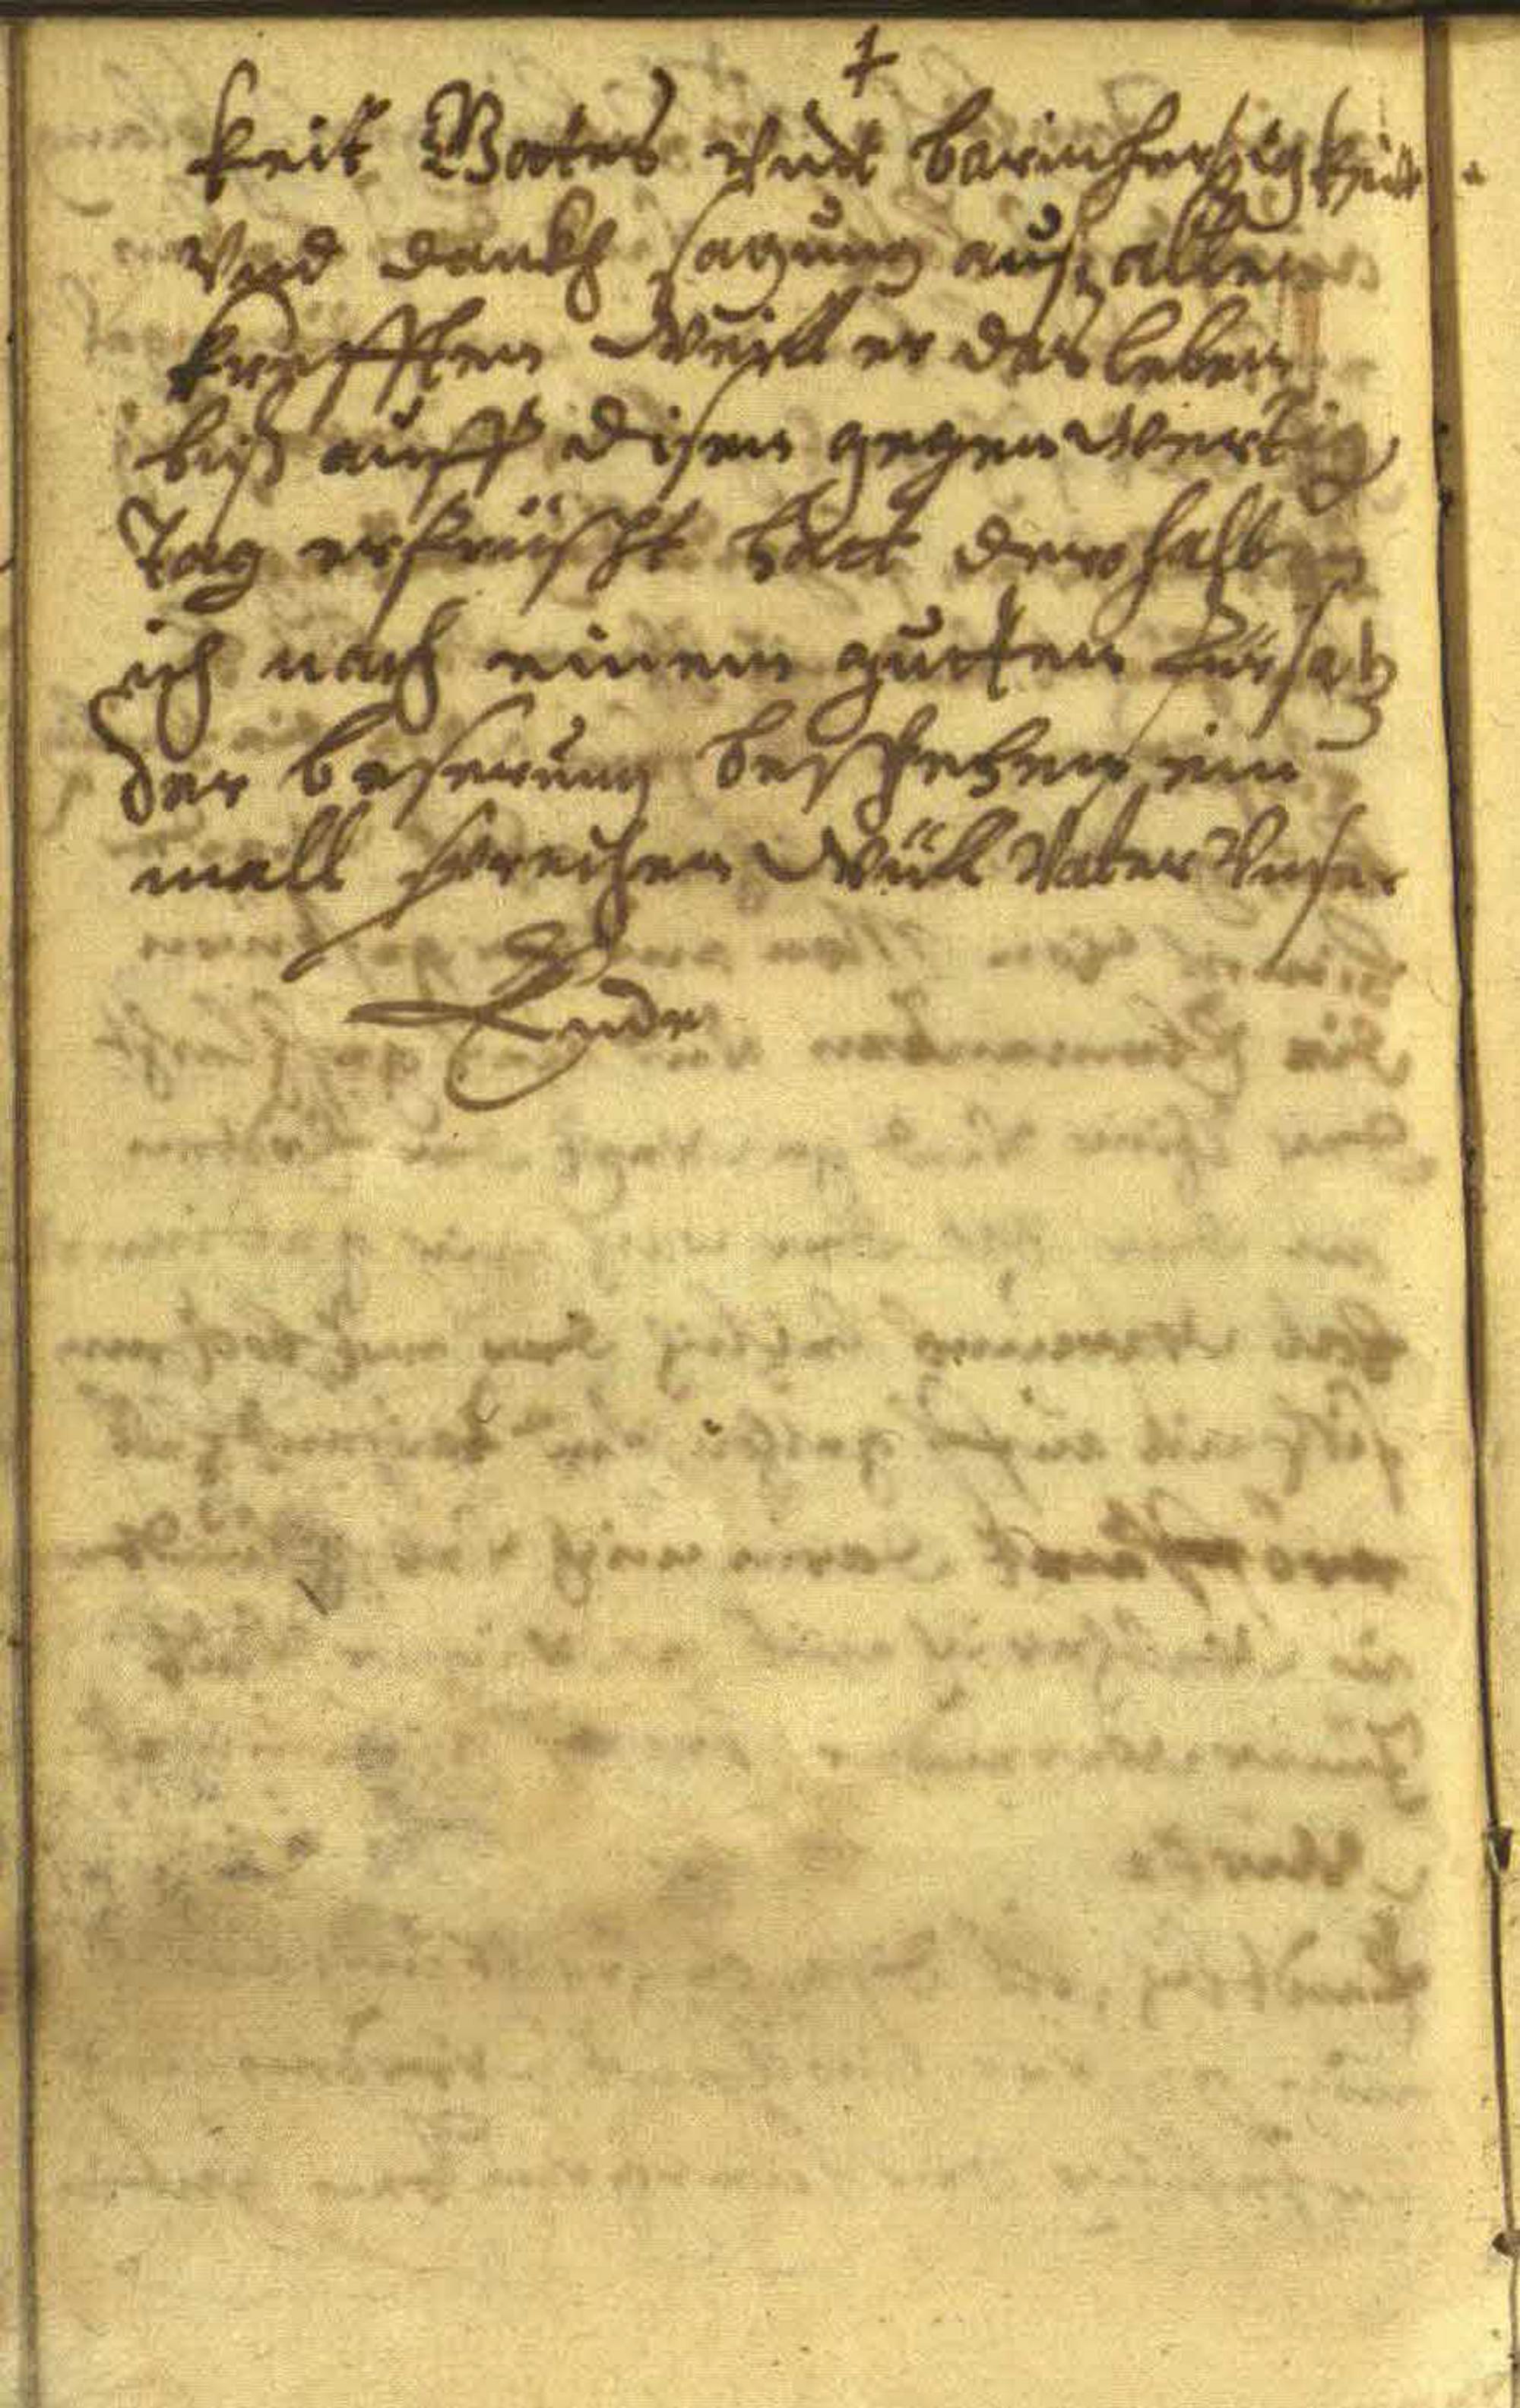 keit Vates vndt barmherzigkeit
Vnd dankh sagung aus allen
krefften Weill er das leben
bis auff disen gegen wertig
tag erfrüscht hatt derhalben
ich nach einem gutten fürsatz
der beserung beschehen ein
mall sprechen Wüll Vater Vnser
Ende